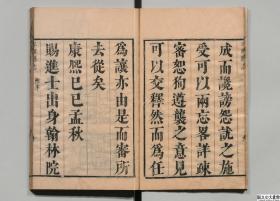 成而讒謗怨詆之施
受可以兩忘畧詳疎
審恕狥遵襲之意見
可以交釋然而爲任
爲讓亦由是而審所
去從矣
康熙己巳孟秋
賜進士出身翰林院